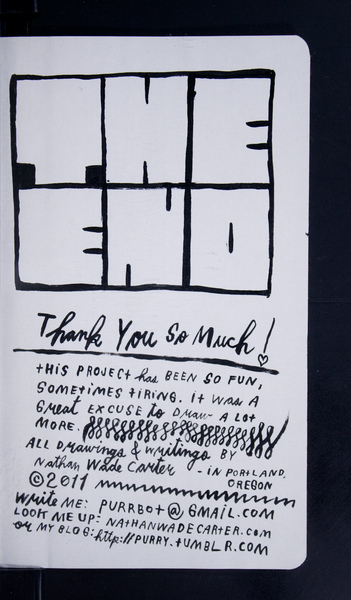 THE
END
Thank You So Much!
tHiS PROJECT has BEEN SO FUN,
SOMETIMES TIRING. it WAS A
GREAT EXCUSE to DRAW A LOT
MORE.
ALL DRAWINGS & WRITINGS BY
Nathan Wade Carter - IN PORTLAND, OREGON
©2011
WRITE ME: PURRBOT@GMAIL.COM
LOOK ME UP: NATHANWADECARTER.COM
OR MY BLOG: http://PURRY.TUMBLR.COM